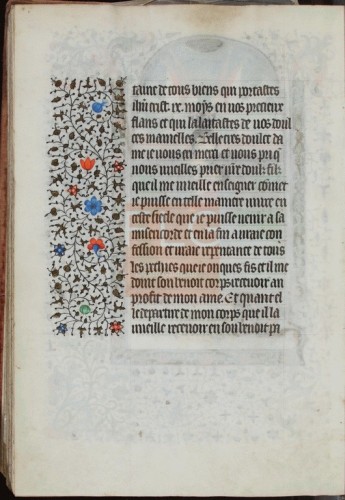 taine de tous biens qui portastes
ihūcrist .ix. moys en vos precieux
flans et qui lalaitastes de vos doul
ces mamelles. Telle tres doulce da
me ie vous en merci et vous pri q̄
vous vueillies prier vr̄e doulz filz
que il me vueille enseigner cōmēt
ie puisse en telle maniere viure en
cest siecle que ie puisse venir a sa
misericorde et en la fin a vraie con
fession et vraie repentance de tous
les pechies que ie onques fis et il me
doint son benoit corps recevoir au
profit de mon ame. Et quant el
le departira de mon corps que il la
vueille recevoir en son benoit pa